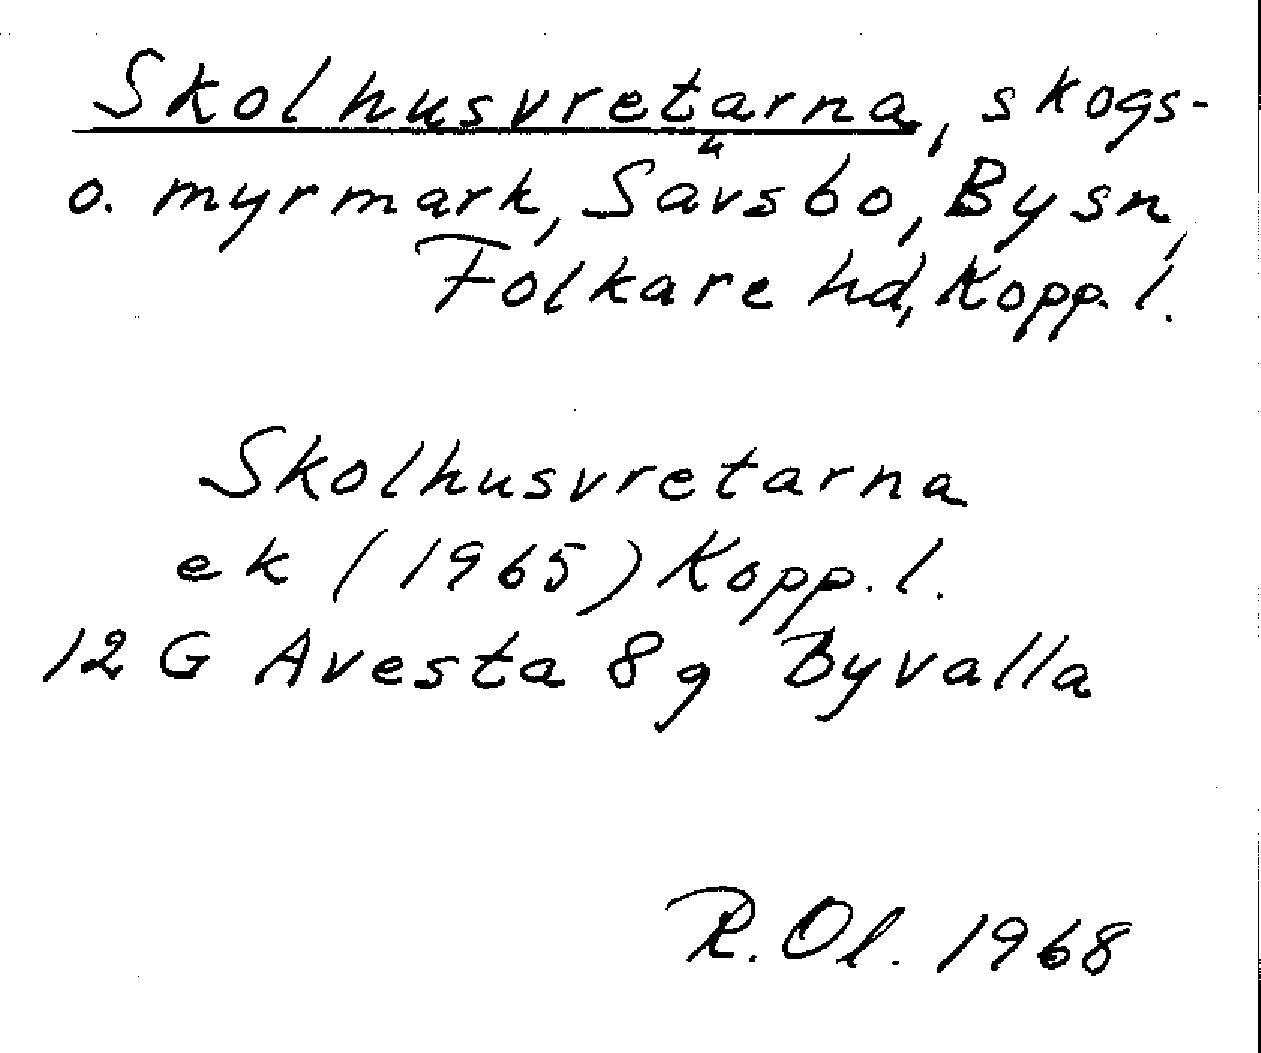 Skolhusvretarna, skogs-
o. myrmark, Sävsbo, By sn,
Folkare hd, Kopp. l.
Skolhusvretarna
ek (1965) Kopp. l.
12 G Avesta 8g Byvalla
R. Ol. 1968